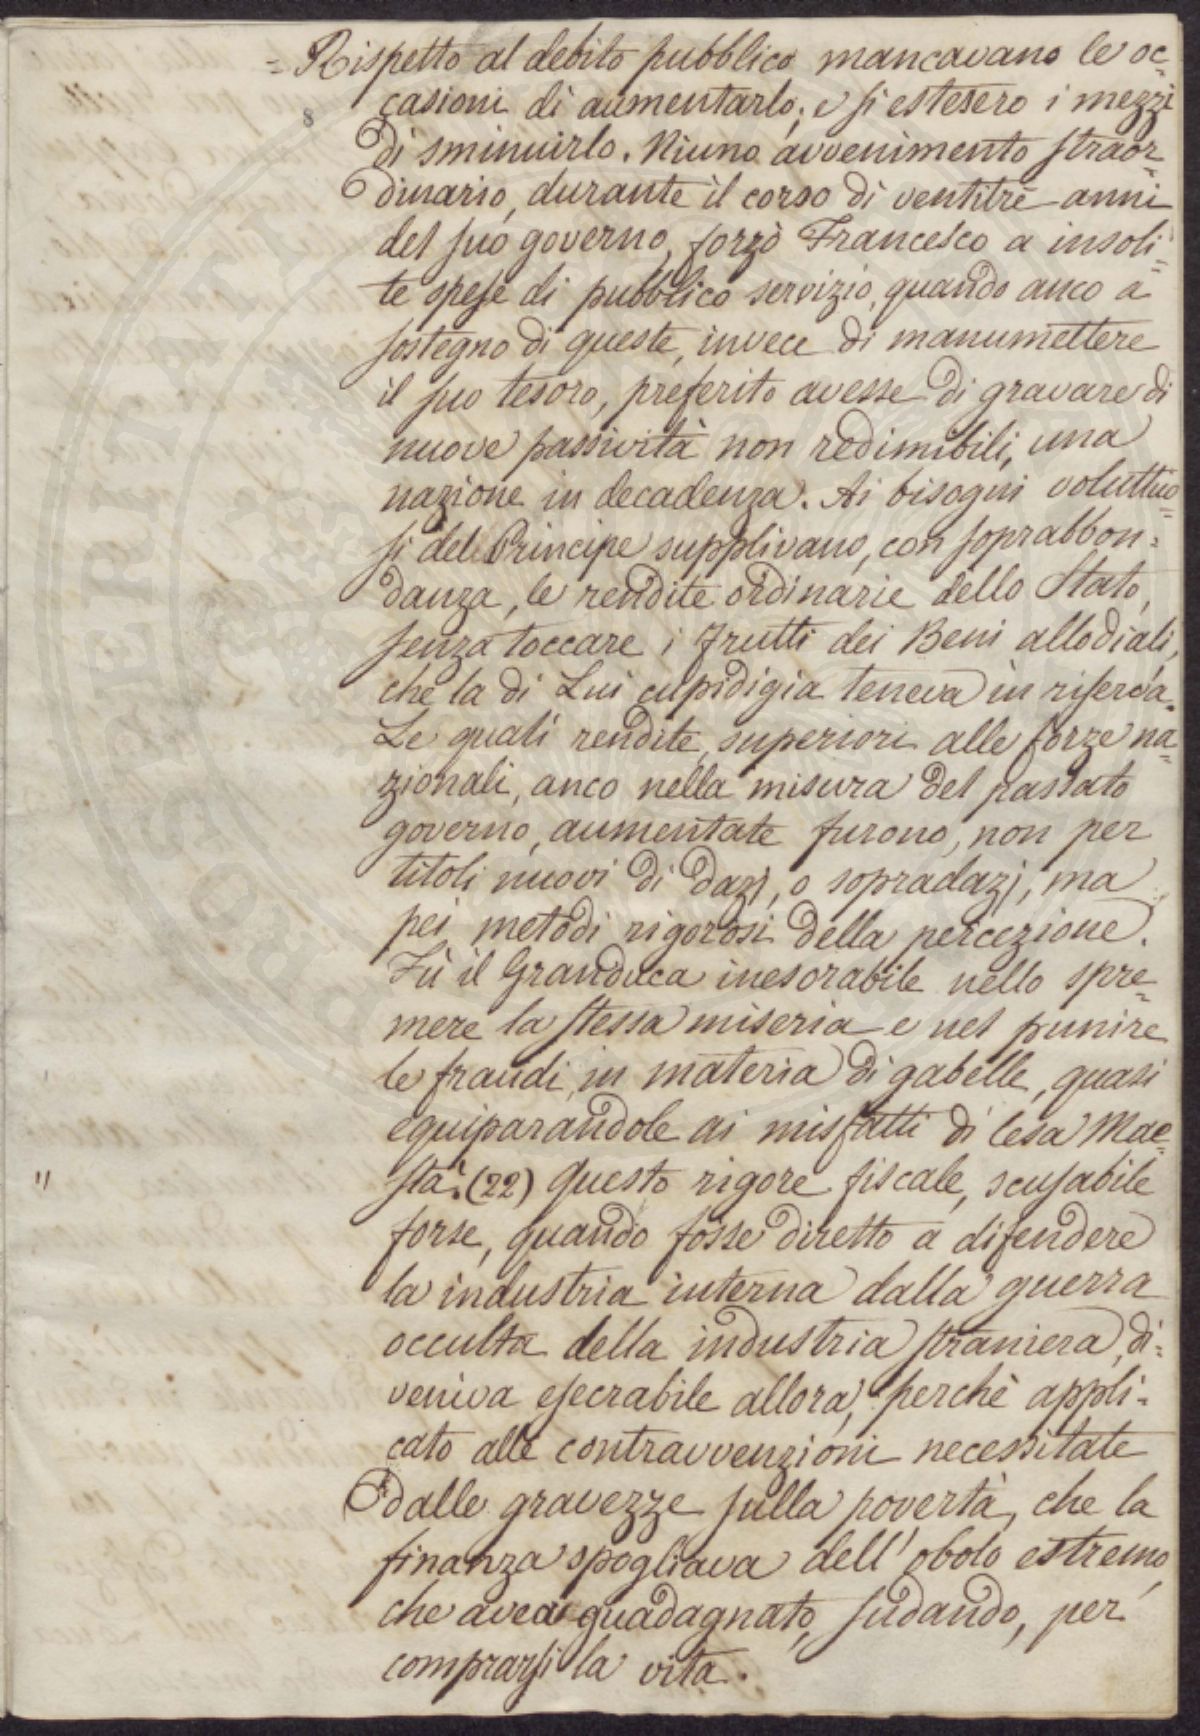 = Rispetto al debito pubblico mancavano le oc=
8 casioni di aumentarlo; e si estesero i mezzi
di sminuirlo. Niuno avvenimento straor=
dinario, durante il corso di ventitrè anni
del suo governo, forzò Francesco a insoli=
te spese di pubblico servizio, quando anco a
sostegno di queste, invece di manumettere
il suo tesoro, preferito avesse di gravare di
nuove passività non redimibili, una
nazione in decadenza. Ai bisogni voluttuo=
si del Principe supplivano, con soprabbon=
danza, le rendite ordinarie dello Stato,
senza toccare i frutti dei Beni allodiali,
che la di Lui cupidigia teneva in riserva.
Le quali rendite, superiori alle forze na=
zionali, anco nella misura del passato
governo, aumentate furono, non per
titoli nuovi di dazj, o sopradazj, ma
pei metodi rigorosi della percezione.
Fù il Granduca inesorabile nello spre=
mere la stessa miseria e nel punire
le fraudi, in materia di gabelle, quasi
equiparandole ai misfatti di lesa Mae=
" stà. (22) Questo rigore fiscale, scusabile
forse, quando fosse diretto a difendere
la industria interna dalla guerra
occulta della industria straniera, di=
veniva esecrabile allora, perchè appli=
cato alle contravvenzioni necessitate
dalle gravezze sulla povertà, che la
finanza spogliava dell' obolo estremo,
che avea guadagnato, sudando, per
comprarsi la vita.